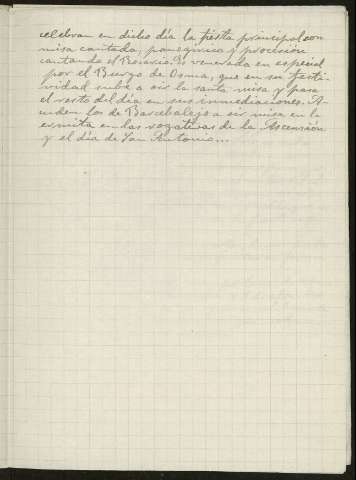 celebran en dicho día la fiesta principal con
misa cantada, panegírico y procesión
cantando el Rosario. Es venerada en especial
por el Burgo de Osma, que en su festi-
vidad sube a oir la santa misa y pasa
el resto del día en sus inmediaciones. A-
cuden los de Barcebalejo a oir misa en la
ermita en las rogativas de la Ascensión
y el día de San Antonio...